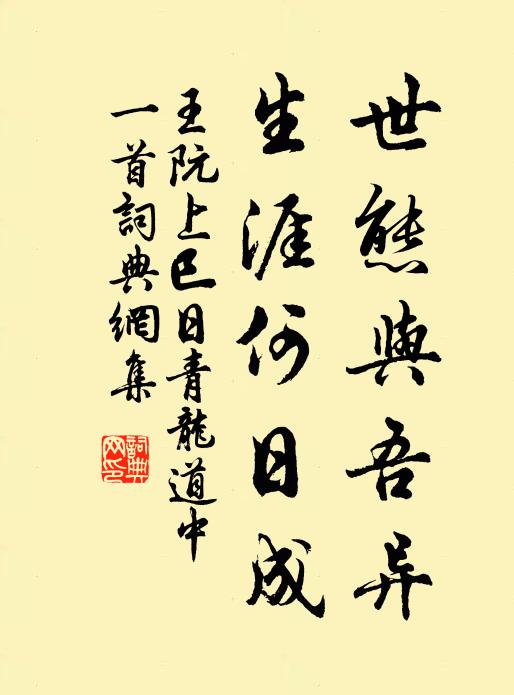 世態與吾异
生涯何日成
王阮上巳日青龍道中
一首詞典網集
詞典网印